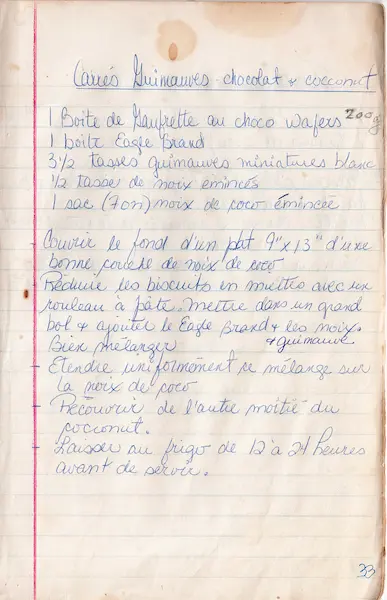 Carrés Guimauves - chocolat & coconut
1 Boite de Gaufrette au choco wafers 200g
1 boîte Eagle Brand
3 1/2 tasses guimauves miniatures blanc
1/2 tasse de noix émincés
1 sac (7 on) noix de coco émincée
Couvrir le fond d'un plat 9" x 13" d'une
bonne couche de noix de coco
Réduire les biscuits en miettes avec un
rouleau à pâte. Mettre dans un grand
bol & ajouter le Eagle Brand & les noix.
& guimauve
Bien mélanger
Etendre uniformément ce mélange sur
la noix de coco
Recouvrir de l'autre moitié du
coconut.
Laisser au frigo de 12 à 24 heures
avant de servir.
33